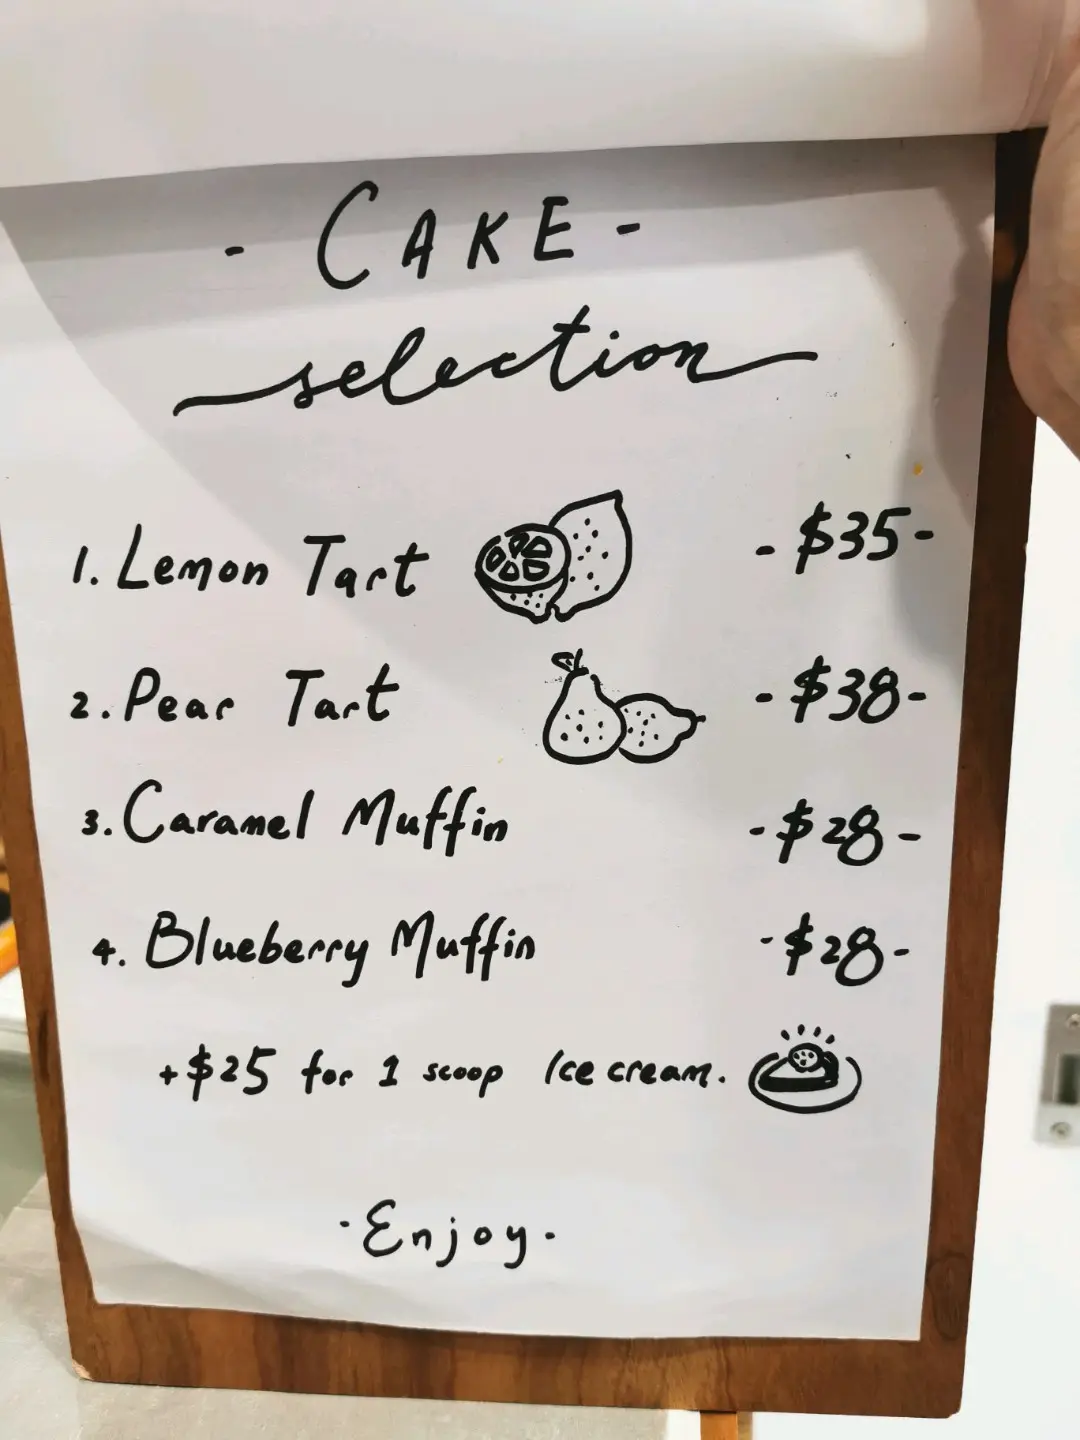 - CAKE -
selection
1. Lemon Tart - $35 -
2. Pear Tart - $38 -
3. Caramel Muffin - $28 -
4. Blueberry Muffin - $28 -
+$25 for 1 scoop Ice cream.
· Enjoy ·